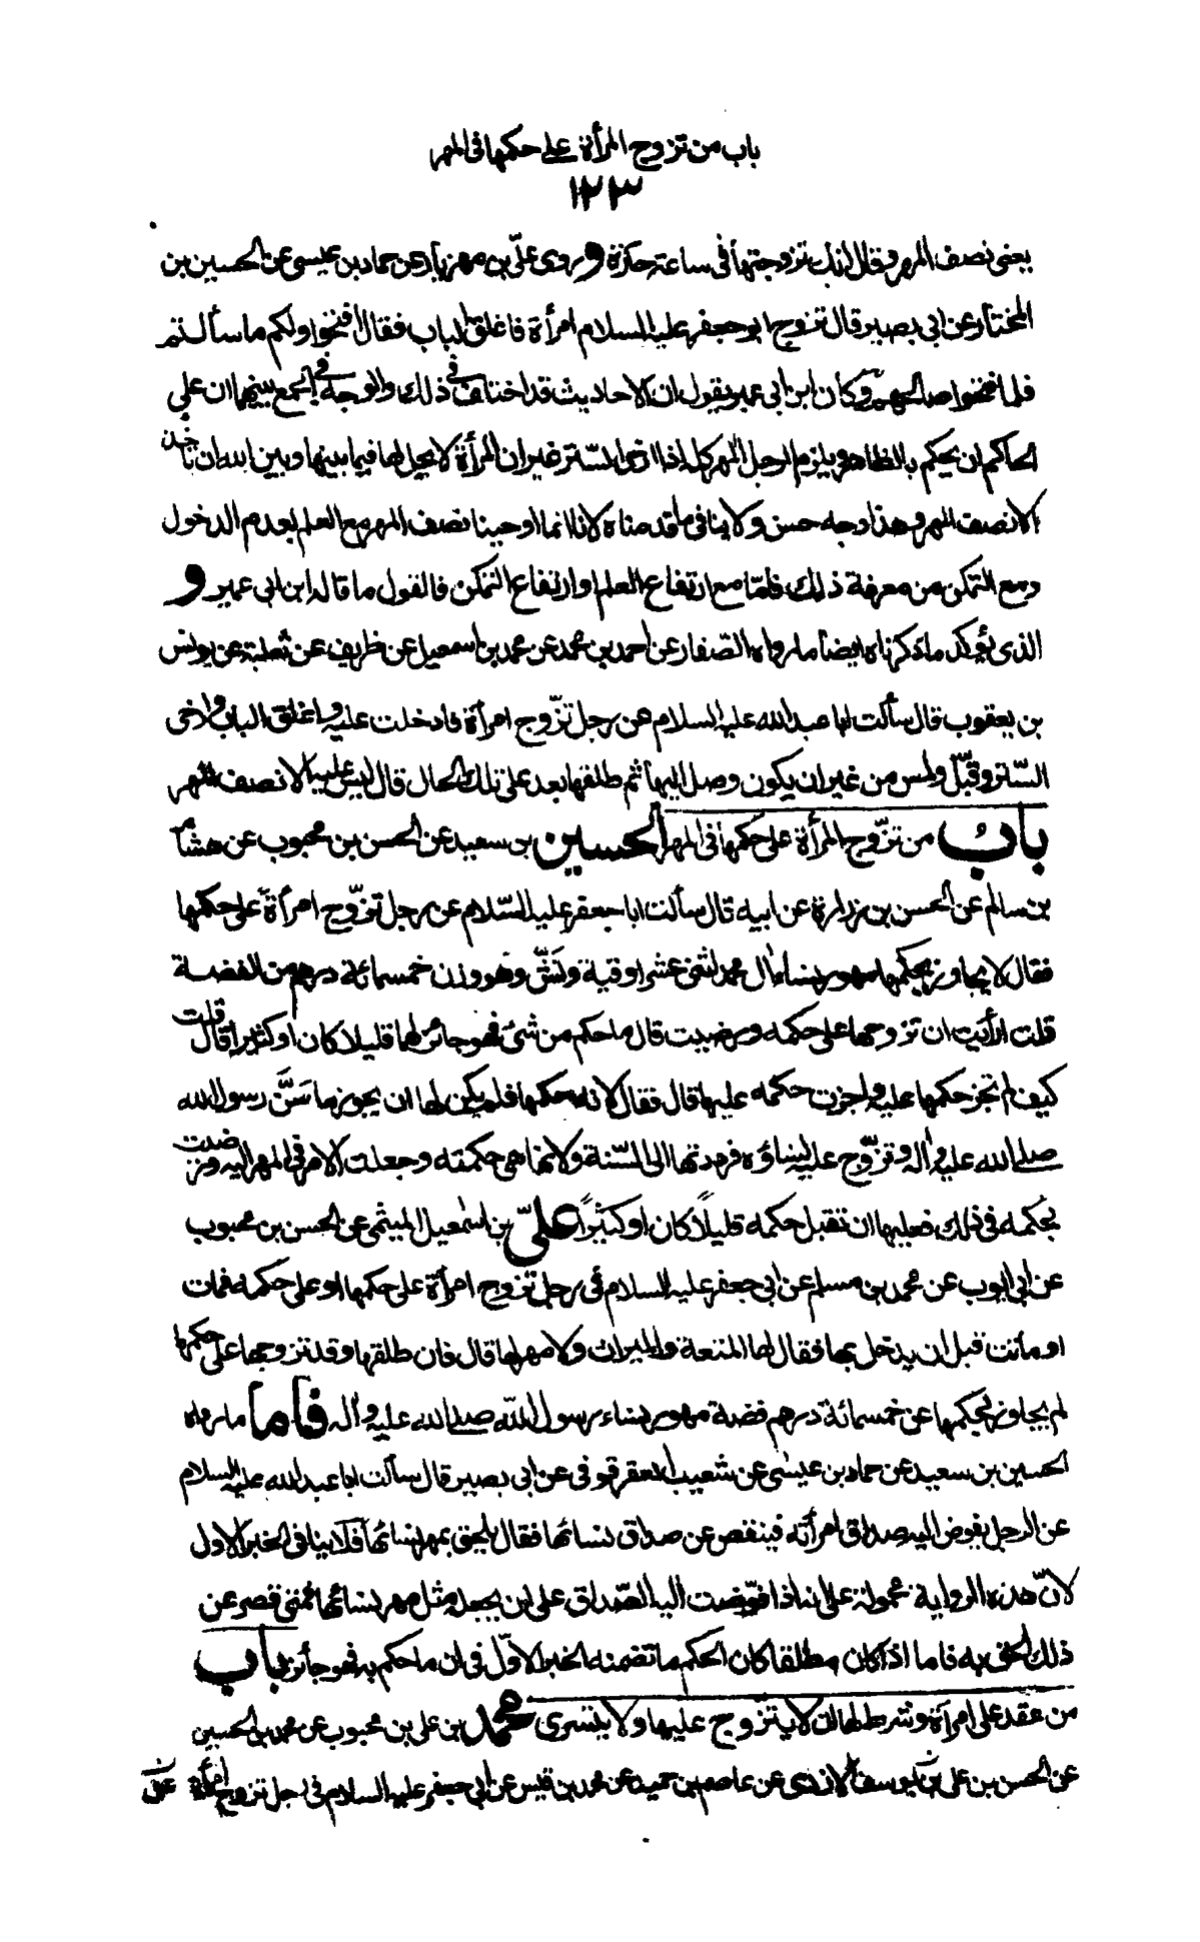 باب من تزوج المرأة على حكمها في المهر
١٢٣
يعني نصف المهر وقال انك تزوجتها في ساعة حارة وروى علي بن مهزيار عن حماد بن عيسى عن الحسين بن
المختار عن ابي بصير قال تزوج ابو جعفر عليه السلام امرأة فاغلق الباب فقال افتحوا ولكم ما سألتم
فلما فتحوا صالحهم وكان ابن ابي عمير يقول ان الاحاديث قد اختلف في ذلك والوجه في الجمع بينهما ان على
الحاكم ان يحكم بالظاهر ويلزم الرجل المهر كله اذا ارخى الستر غير ان المرأة لا يحل لها فيما بينها وبين الله ان تأخذ
الا نصف المهر وهذا وجه حسن ولا ينافي ما قدمناه لانا انما اوجبنا نصف المهر مع العلم بعدم الدخول
ومع التمكن من معرفة ذلك فامّا مع ارتفاع العلم او ارتفاع التمكن فالقول ما قاله ابن ابي عمير و
الذي يؤكد ما ذكرناه ايضا ما رواه الصفار عن احمد بن محمد عن محمد بن اسمعيل عن ظريف عن ثعلبة عن يونس
بن يعقوب قال سألت ابا عبد الله عليه السلام عن رجل تزّوج امرأة فادخلت عليه واغلق الباب وارخى
السّتر وقبّل ولمس من غير ان يكون وصل اليها ثم طلقها بعد على تلك الحال قال ليس عليه الا نصف المهر
باب من تزّوج المرأة على حكمها في المهر الحسين بن سعيد عن الحسن بن محبوب عن هشام
بن سالم عن الحسن بن زرارة عن ابيه قال سألت ابا جعفر عليه السّلام عن رجل تزّوج امرأة على حكمها
فقال لا يجاوز بحكمها مهور نساء ال محمد اثنتي عشر اوقية ونَشّ وهو وزن خمسمائة درهم من الفضة
قلت ارأيت ان تزوجها على حكمه ورضيت قال ما حكم من شئ فهو جائز لها قليلا كان او كثيرا قال قلت
كيف لم تجز حكمها عليه واجزت حكمه عليها قال فقال لانه حكمها فلم يكن لها ان يجوز ما سَنَّ رسول الله
صلى الله عليه وآله وتزّوج عليه نساؤه فرددتها الى السّنة ولانها هي حكمته وجعلت الامر في المهر اليه ورضيت
بحكمه في ذلك فعليها ان تقبل حكمه قليلاً كان او كثيراً عليّ بن اسمعيل الميثمي عن الحسن بن محبوب
عن ابي ايوب عن محمد بن مسلم عن ابي جعفر عليه السلام في رجل تزوج امرأة على حكمها او على حكمه فمات
او ماتت قبل ان يدخل بها فقال لها المتعة والميراث ولا مهر لها قال فان طلقها وقد تزوجها على حكمها
لم يجاوز بحكمها عن خمسمائة درهم فضة مهور نساء رسول اللّه صلى الله عليه وآله فأما ما رواه
الحسين بن سعيد عن حماد بن عيسى عن شعيب العقرقوفي عن ابي بصير قال سألت ابا عبد الله عليه السلام
عن الرجل يفوض اليه صداق امرأته فينقص عن صداق نسائها فقال يلحق بمهر نسائها فلا ينافي الخبر الاول
لانّ هذه الرواية محمولة على انه اذا فوّضت اليه الصّداق على ان يجعله مثل مهر نسائها فمتى قصر عن
ذلك الحق به فاما اذا كان مطلقا كان الحكم ما تضمنه الخبر الاوّل في ان ما حكم به فهو جائز باب
من عقد على امرأة وشرط لها ان لا يتزّوج عليها ولا يتسرى محمد بن علي بن محبوب عن محمد بن الحسين
عن الحسن بن علي بن يوسف الازدي عن عاصم بن حميد عن محمد بن قيس عن ابي جعفر عليه السلام في رجل تزوج امرأة